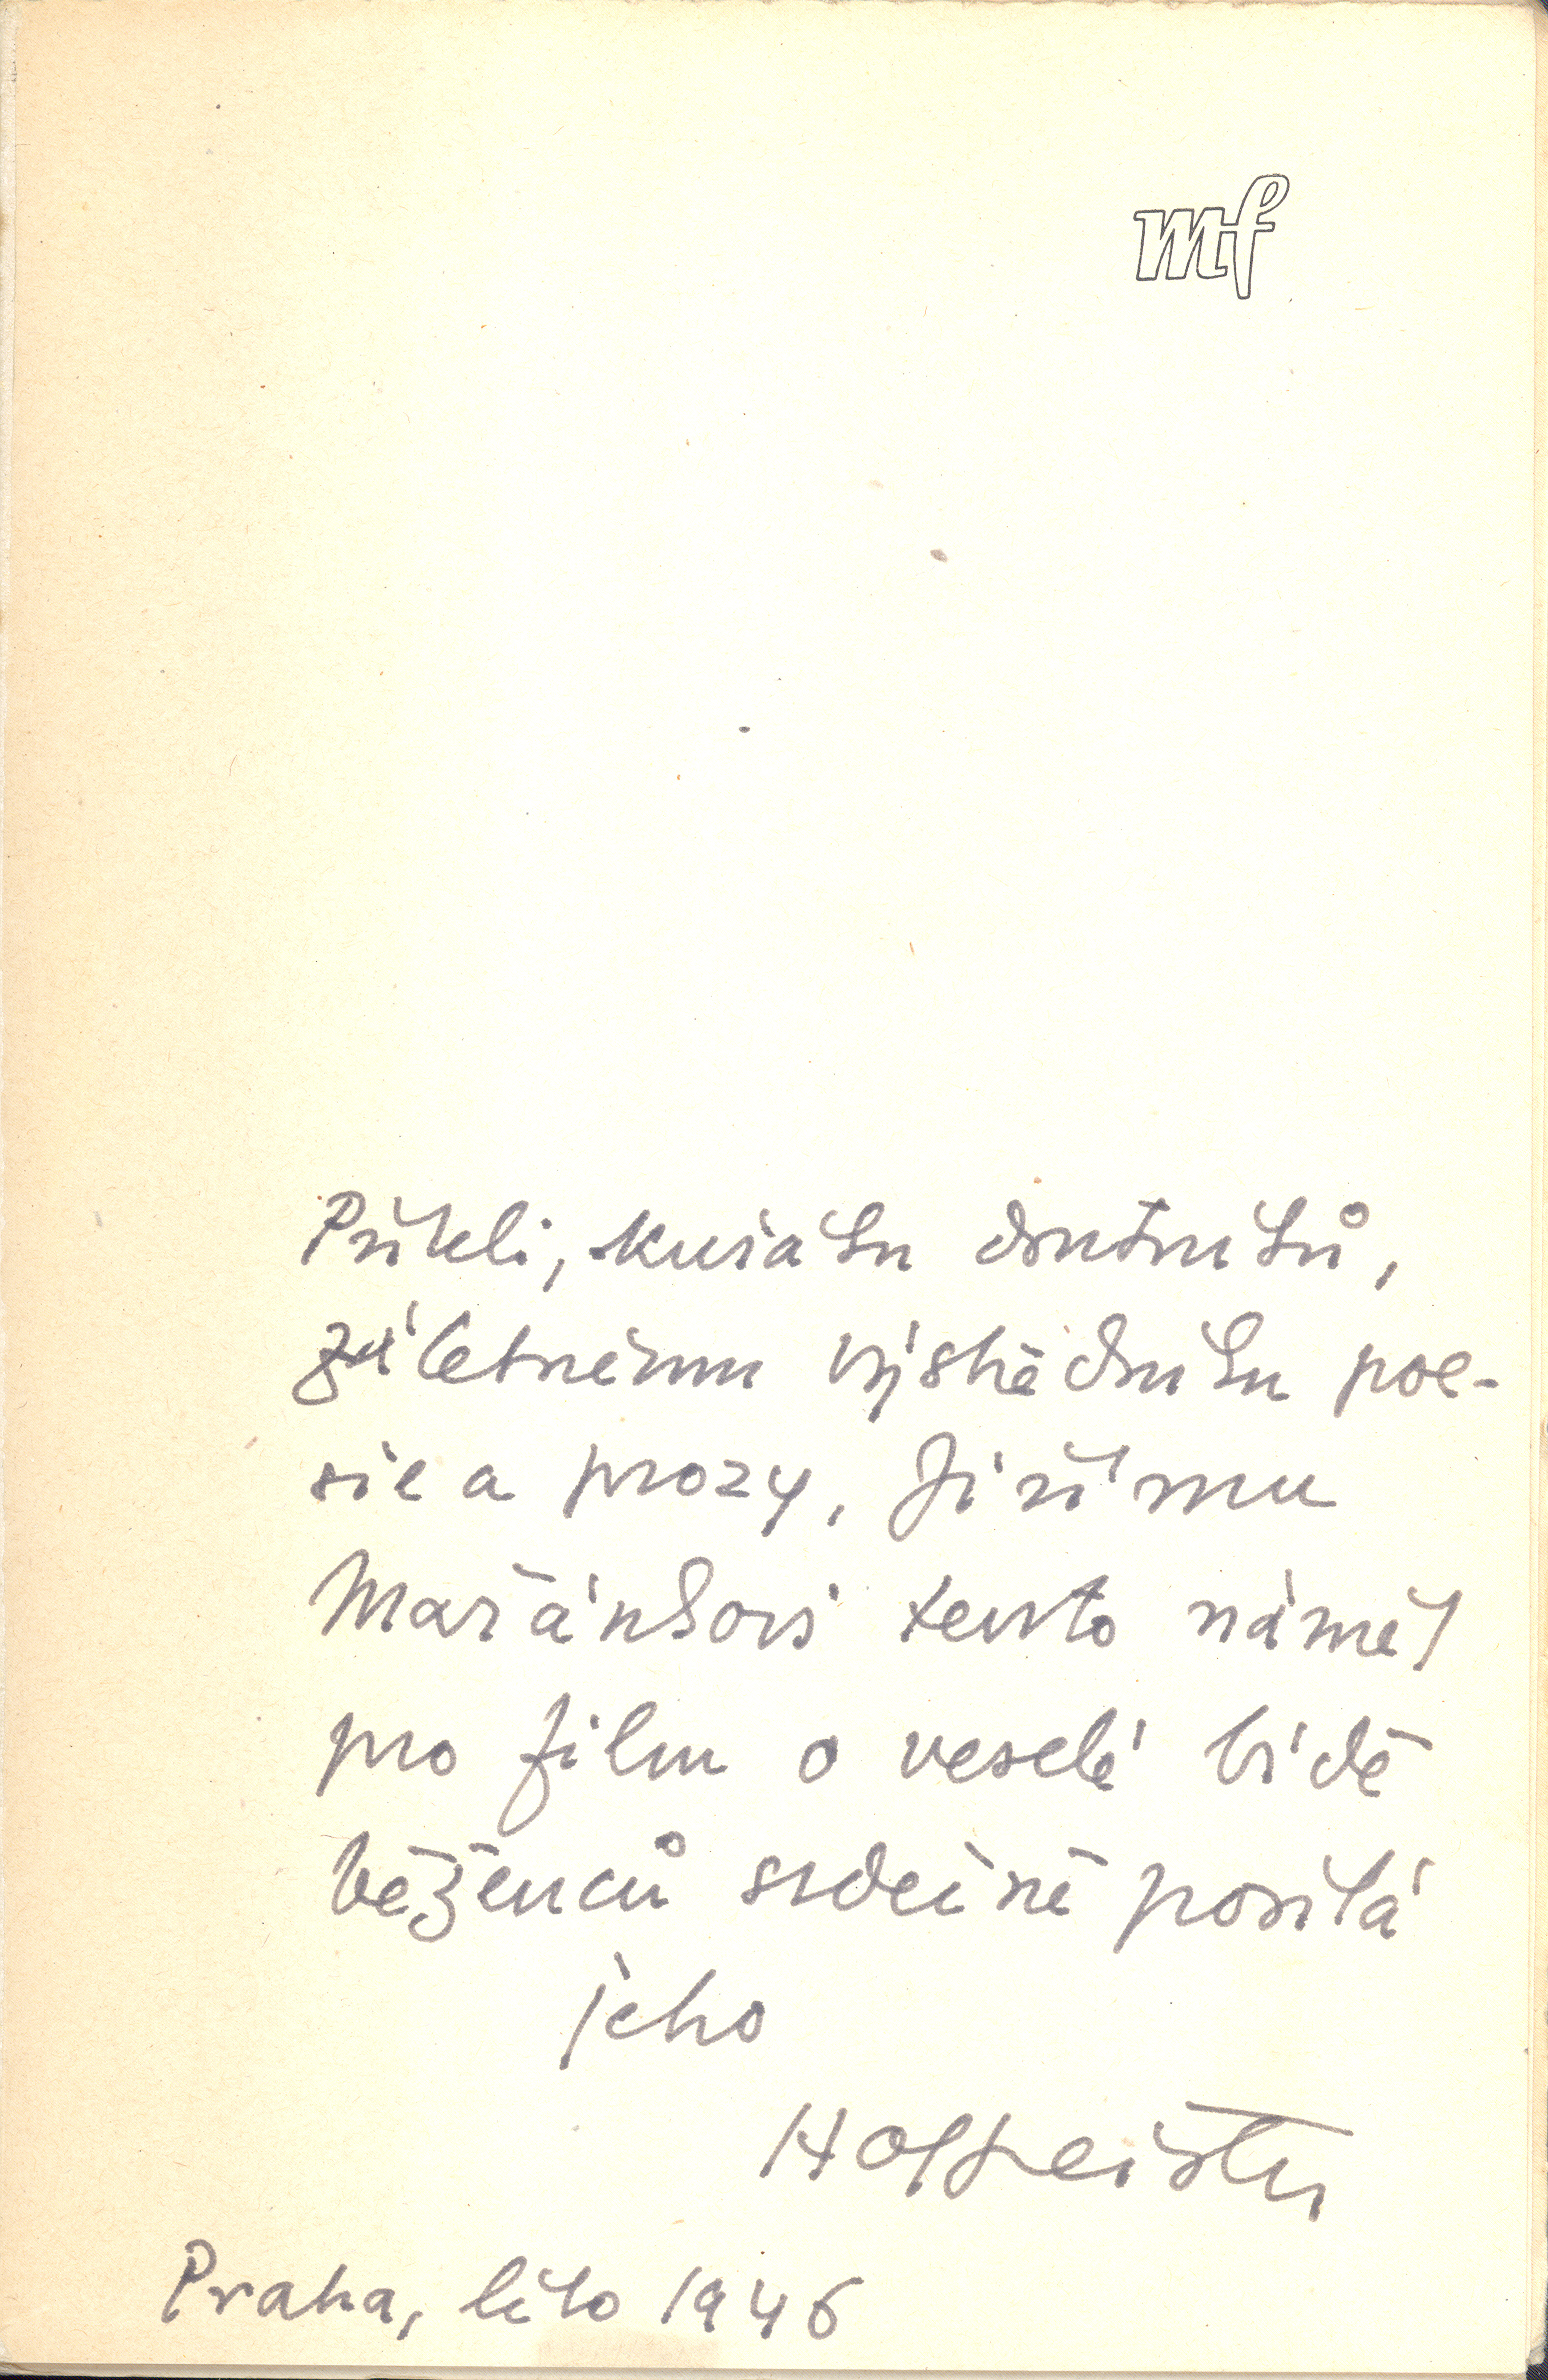 mf
Příteli, kuřáku doutníků,
záletnému výstředníku poe-
sie a prozy, Jiřímu
Mařánkovi tento námět
pro film o veselé bídě
běženců srdečně posílá
jeho
Hoffmeister
Praha, léto 1946